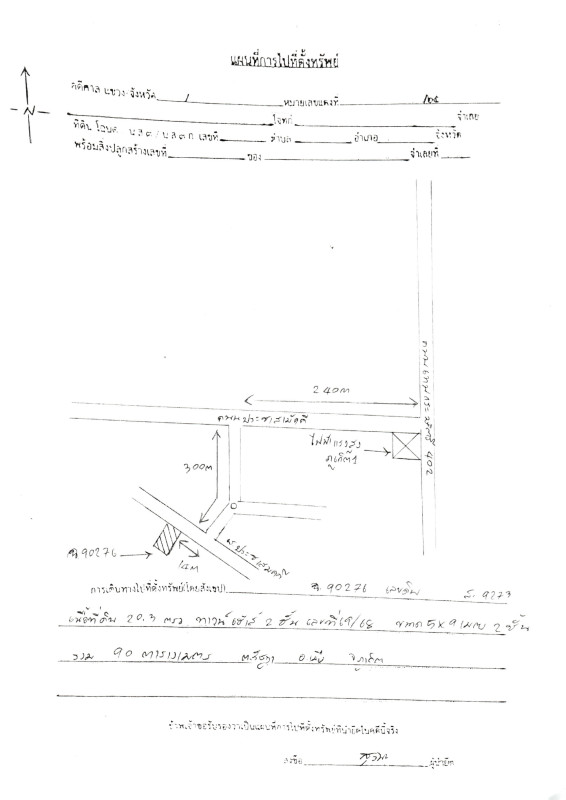 แผนที่การไปที่ตั้งทรัพย์
คดีศาล แขวง/จังหวัด 1 หมายเลขแดงที่
โจทก์ จำเลย
ที่ดิน โฉนด นส๓/นส๓ก เลขที่ ตำบล อำเภอ จังหวัด
พร้อมสิ่งปลูกสร้างเลขที่ ของ จำเลยที่
N
240m
ถนนประชาสามัคคี
402
ไฟฟ้าแรงสูง
ภูเก็ต1
300m
ซ.ประชาสามัคคี
ฉ.90276
14M
การเดินทางไปที่ตั้งทรัพย์(โดยสังเขป) ฉ. 90276 เลขดิน ส. 9273
เนื้อที่ดิน 20.3 ตรว ทาวน์เฮ้าส์ 2 ชั้น เลขที่ ขนาด 5x9 เมตร 2 ชั้น
รวม 90 ตารางเมตร ต.รัษฎา อ.เมือง จ.ภูเก็ต
ข้าพเจ้าขอรับรองว่าเป็นแผนที่การไปที่ตั้งทรัพย์ที่นำยึดในคดีนี้จริง
ลงชื่อ ผู้นำยึด